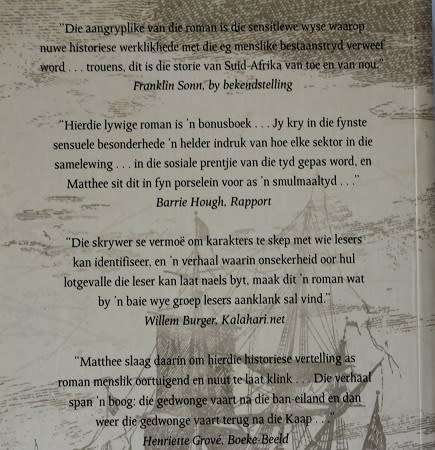 "Die aangryplike van die roman is die sensitiewe wyse waarop
nuwe historiese werklikhede met die eg menslike bestaanstryd verweef
word . . . trouens, dit is die storie van Suid-Afrika van toe en van nou."
Franklin Sonn, by bekendstelling
"Hierdie lywige roman is 'n bonusboek . . . Jy kry in die fynste
sensuele besonderhede 'n helder indruk van hoe elke sektor in die
samelewing . . . in die sosiale prentjie van die tyd gepas word, en
Matthee sit dit in fyn porselein voor as 'n smulmaaltyd . . ."
Barrie Hough, Rapport
"Die skrywer se vermoë om karakters te skep met wie lesers
kan identifiseer, en 'n verhaal waarin onsekerheid oor hul
lotgevalle die leser kan laat naels byt, maak dit 'n roman wat
by 'n baie wye groep lesers aanklank sal vind."
Willem Burger, Kalahari.net
"Matthee slaag daarin om hierdie historiese vertelling as
roman menslik oortuigend en nuut te laat klink . . . Die verhaal
span 'n boog: die gedwonge vaart na die ban-eiland en dan
weer die gedwonge vaart terug na die Kaap . . ."
Henriette Grové, Boeke-Beeld